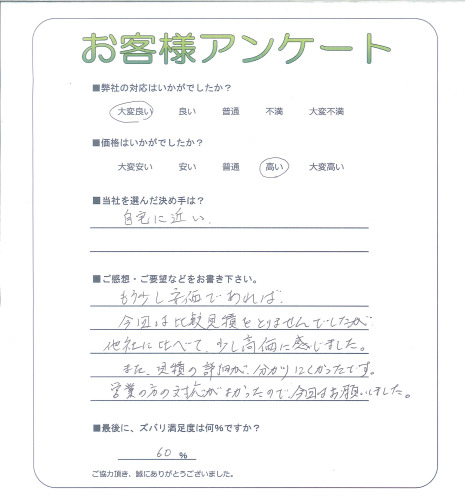 お客様アンケート
■弊社の対応はいかがでしたか?
大変良い 良い 普通 不満 大変不満
■価格はいかがでしたか?
大変安い 安い 普通 高い 大変高い
■当社を選んだ決め手は?
自宅に近い.
■ご感想・ご要望などをお書き下さい。
もう少し安価であれば.
今回は比較見積をとりませんでしたが
他社に比べて、少し高価に感じました。
また、見積の詳細が、分かりにくかったです。
営業の方の対応がよかったので、今回はお願いしました。
■最後に、ズバリ満足度は何%ですか?
60 %
ご協力頂き、誠にありがとうございました。